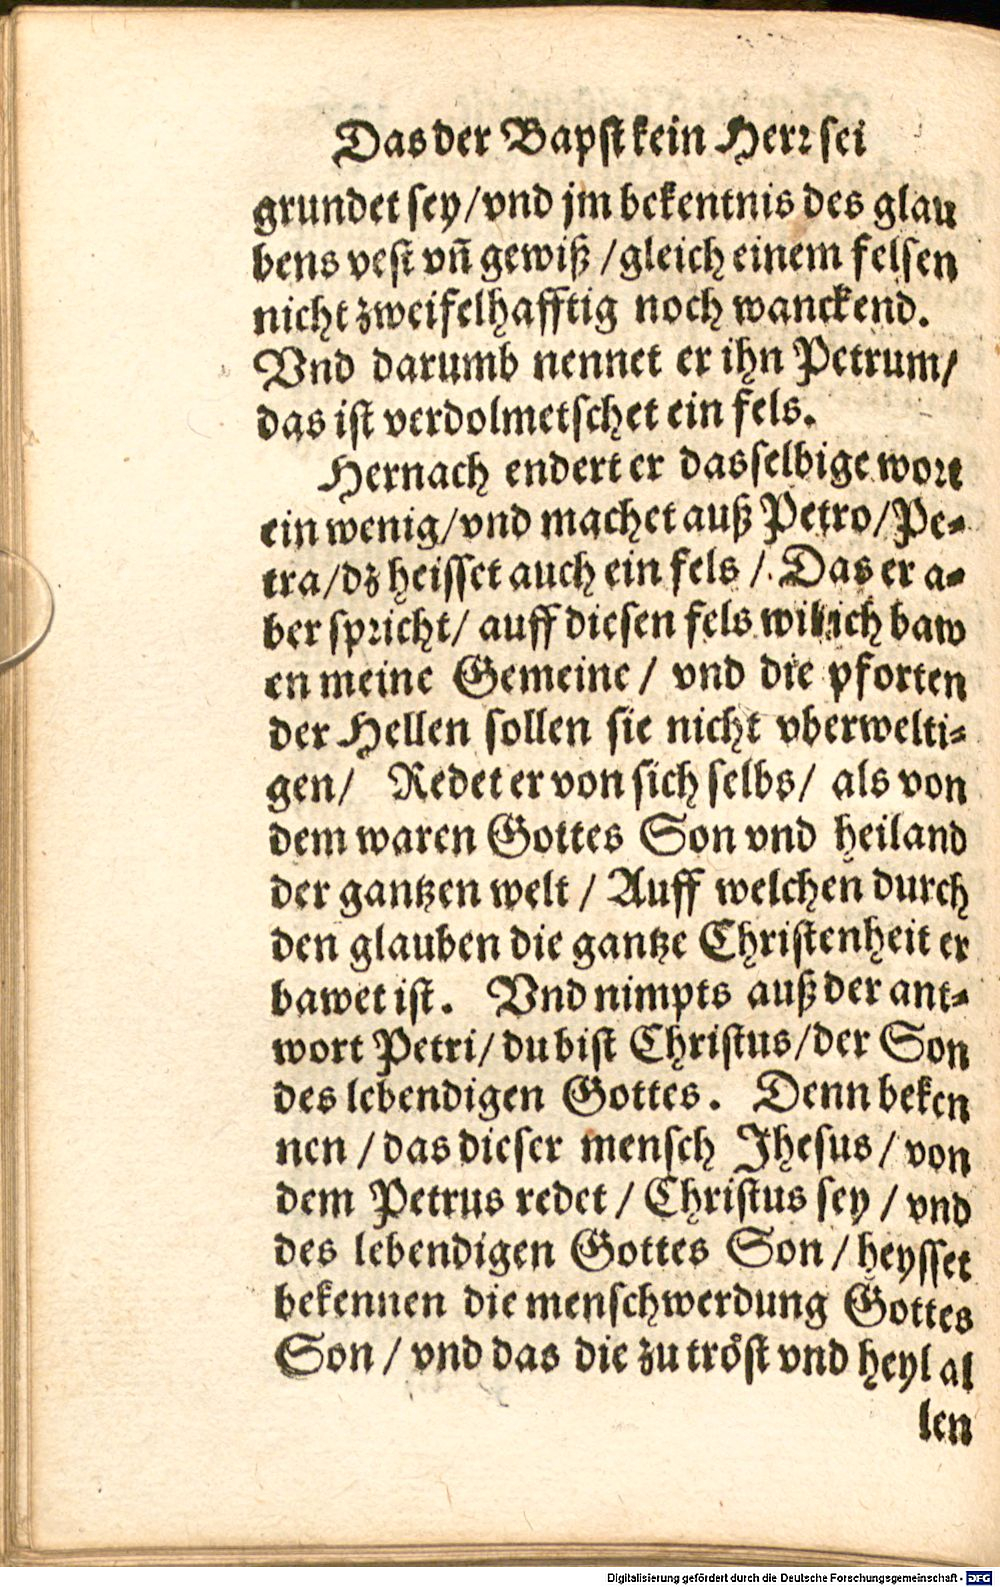 Das der Bapst kein Herr sei
grundet sey/vnd jm bekentnis des glau
bens vest vn̄ gewiß /gleich einem felsen
nicht zweifelhafftig noch wanckend.
Vnd darumb nennet er ihn Petrum/
das ist verdolmetschet ein fels.
Hernach endert er dasselbige wort
ein wenig/vnd machet auß Petro/Pe-
tra/dz heisset auch ein fels /. Das er a-
ber spricht/ auff diesen fels wil ich baw
en meine Gemeine/ vnd die pforten
der Hellen sollen sie nicht vberwelti-
gen/ Redet er von sich selbs/ als von
dem waren Gottes Son vnd heiland
der gantzen welt / Auff welchen durch
den glauben die gantze Christenheit er
bawet ist. Vnd nimpts auß der ant-
wort Petri/ du bist Christus/der Son
des lebendigen Gottes. Denn beken
nen /das dieser mensch Jhesus/ von
dem Petrus redet / Christus sey / vnd
des lebendigen Gottes Son/ heysset
bekennen die menschwerdung Gottes
Son/ vnd das die zu tröst vnd heyl al
len
Digitalisierung gefördert durch die Deutsche Forschungsgemeinschaft - DFG